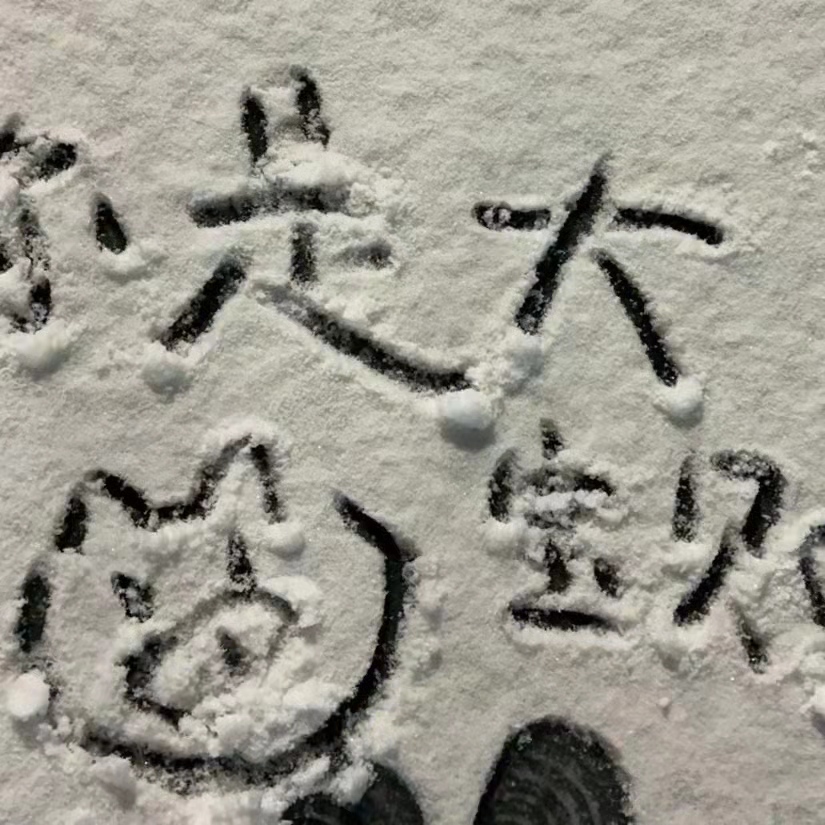 你是大
宝贝